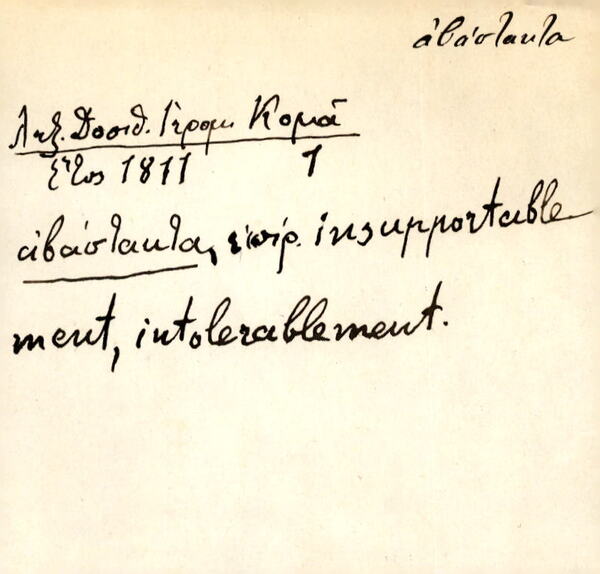 ἀβάστακτα
Λεξ. Δοσιθ. Ἱερομ. Κομᾶ
ἔτος 1811 1
ἀβάστακτα, ἐπίρ. insupportable
ment, intolerablement.